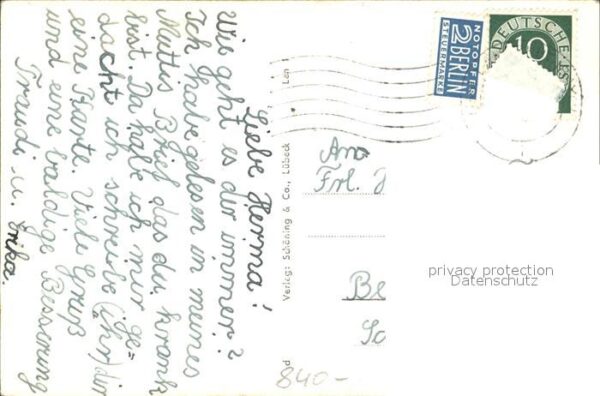 Liebe Herma!
Wie geht es dir immer?
Ich habe gelesen in meines
Muttis Brief das du krank
bist. Da habe ich mir ge=
dacht ich schreibe (ihr) dir
eine Karte. Viele Gruß
und eine baldige Besserung
Traudi u. Erika.
Verlag: Schöning & Co., Lübeck
NOTOPFER
2 BERLIN
STEUERMARKE
DEUTSCHE
10
An
Frl.
Be
privacy protection
Datenschutz
840-